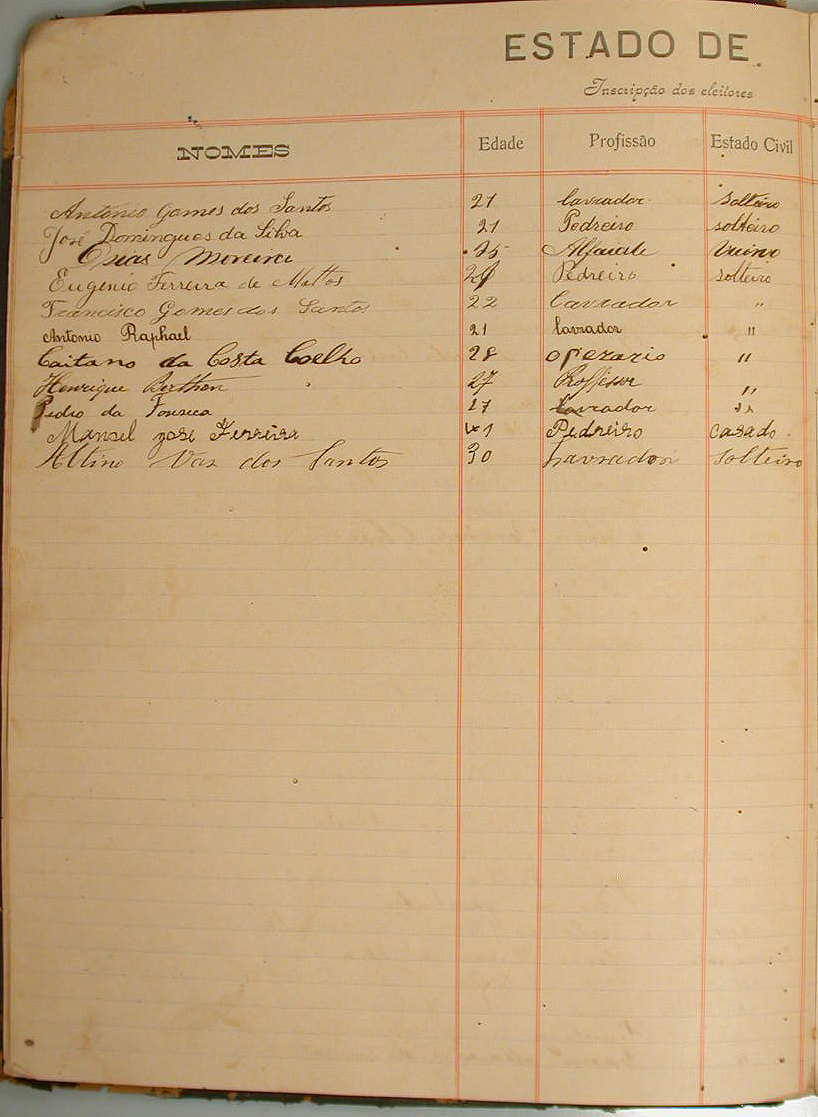 ESTADO DE
Inscripção dos eleitores
NOMES Edade Profissão Estado Civil
Antonio Gomes dos Santos 21 lavrador solteiro
José Domingues da Silva 21 Pedreiro solteiro
Osias Moreira Alfaiate
Eugenio Ferreira de Mattos Pedreiro solteiro
Francisco Gomes dos Santos 22 lavrador "
Antonio Raphael 21 lavrador "
Caitano da Costa Coelho 28 operario "
Henrique 27 Professor "
Pedro da Fonseca lavrador "
Manoel José Ferreira Pedreiro casado
Altino Vaz dos Santos 30 Lavrador solteiro